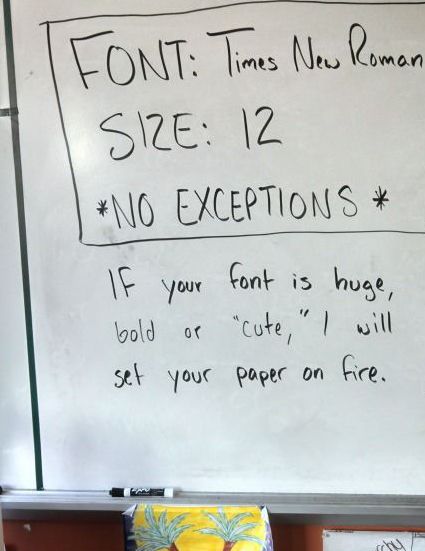 FONT: Times New Roman
SIZE: 12
*NO EXCEPTIONS*
IF your font is huge,
bold or "cute," I will
set your paper on fire.